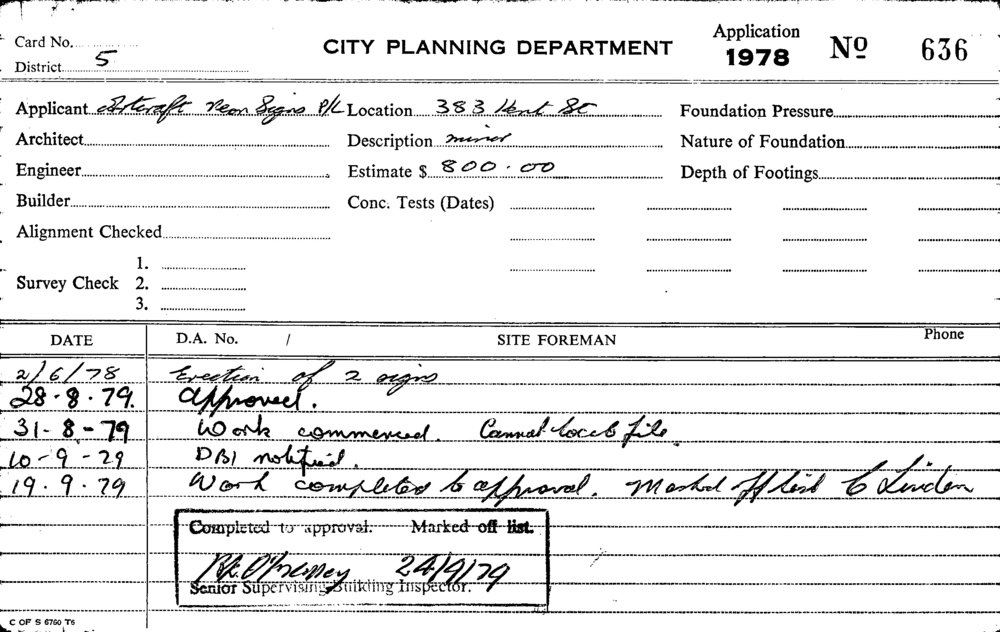 Card No.
District 5
CITY PLANNING DEPARTMENT
Application
1978
No 636
Applicant Artcraft Neon Signs P/L
Location 383 Kent St
Foundation Pressure
Architect
Description minor
Nature of Foundation
Engineer
Estimate $ 800.00
Depth of Footings
Builder
Conc. Tests (Dates)
Alignment Checked
Survey Check
1.
2.
3.
DATE
D.A. No. /
SITE FOREMAN
Phone
2/6/78 Erection of 2 signs
28.8.79. approved.
31-8-79 Work commenced. Cannot locate file.
10-9-79 DBI notified.
19.9.79 Work completed to approval. Marked off list C Linden
Completed to approval. Marked off list.
24/9/79
Senior Supervising Building Inspector.
C OF S 6760 T6